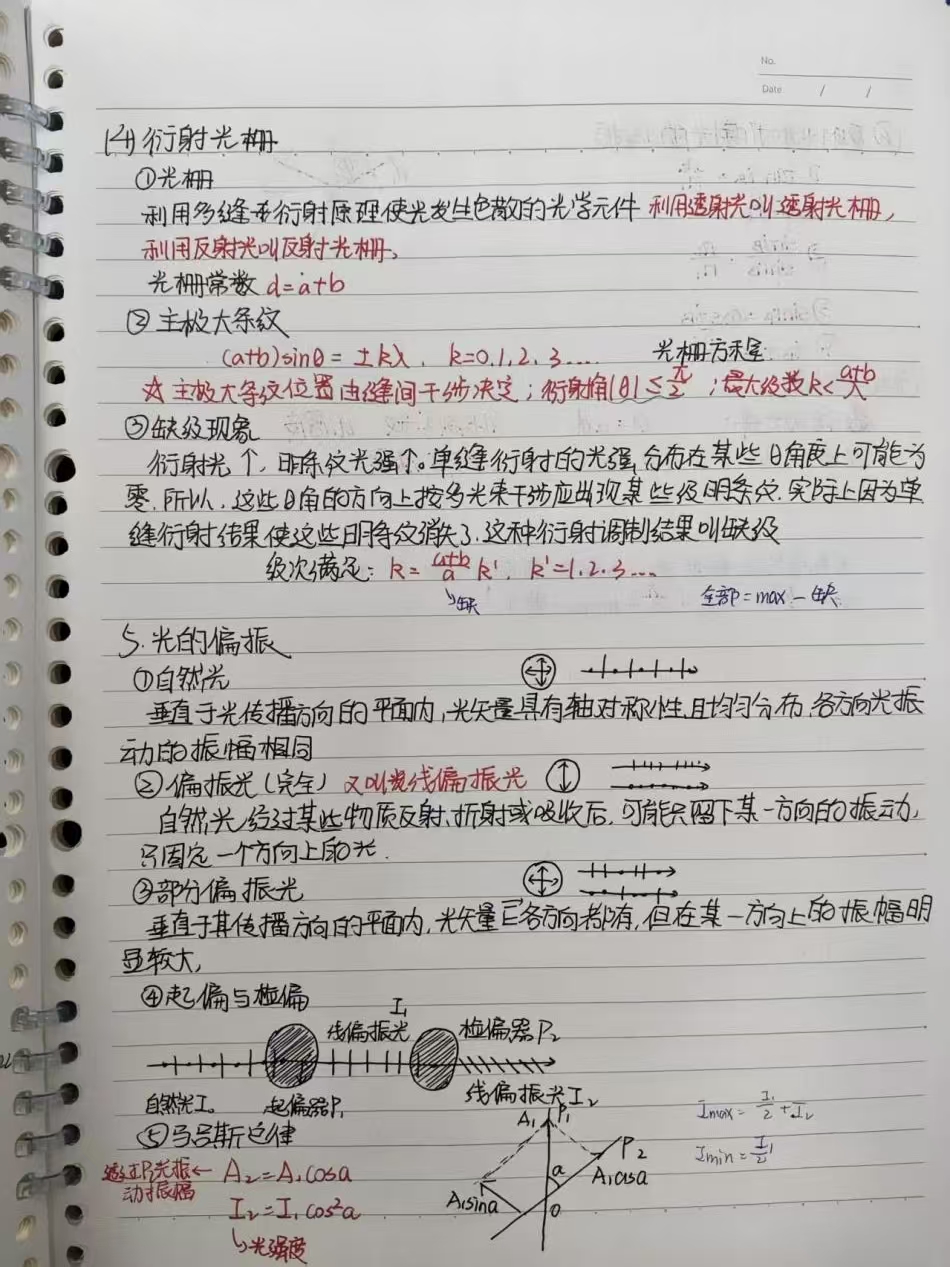 No.
Date / /
(4) 衍射光栅
①光栅
利用多缝衍射原理使光发生色散的光学元件 利用透射光叫透射光栅,
利用反射光叫反射光栅。
光栅常数 d=a+b
② 主极大条纹
(a+b)sinθ = ±kλ, k=0.1.2.3.... 光栅方程
☆ 主极大条纹位置由缝间干涉决定; 衍射角|θ|≤π/2 ; 最大级数k<(a+b)/λ
③缺级现象
衍射光个, 明条纹光强个。单缝衍射的光强分布在某些θ角度上可能为
零.所以, 这些θ角的方向上按多光束干涉应出现某些级明条纹.实际上因为单
缝衍射结果使这些明条纹消失了,这种衍射调制结果叫缺级
级次满足: k= (a+b)/a k', k'=1.2.3....
↳缺 全部=max-缺
5.光的偏振
①自然光
垂直于光传播方向的平面内,光矢量具有轴对称性且均匀分布,各方向光振
动的振幅相同
②偏振光(完全) 又叫线偏振光
自然光经过某些物质反射、折射或吸收后,可能只留下某一方向的振动,
只固定一个方向上的光.
③部分偏振光
垂直于其传播方向的平面内,光矢量各方向都有,但在某一方向上的振幅明
显较大,
④起偏与检偏 I₁
线偏振光 检偏器P₂
自然光I₀ 起偏器P₁ 线偏振光I₂
⑤马吕斯定律 A₁ P₁ Imax= I₁/2 + I₂
P₂ Imin= I₁/2
透过P₂光振← A₂=A₁cosa a A₁cosa
动振幅
A₁sina
I₂=I₁cos²a 0
↳光强度